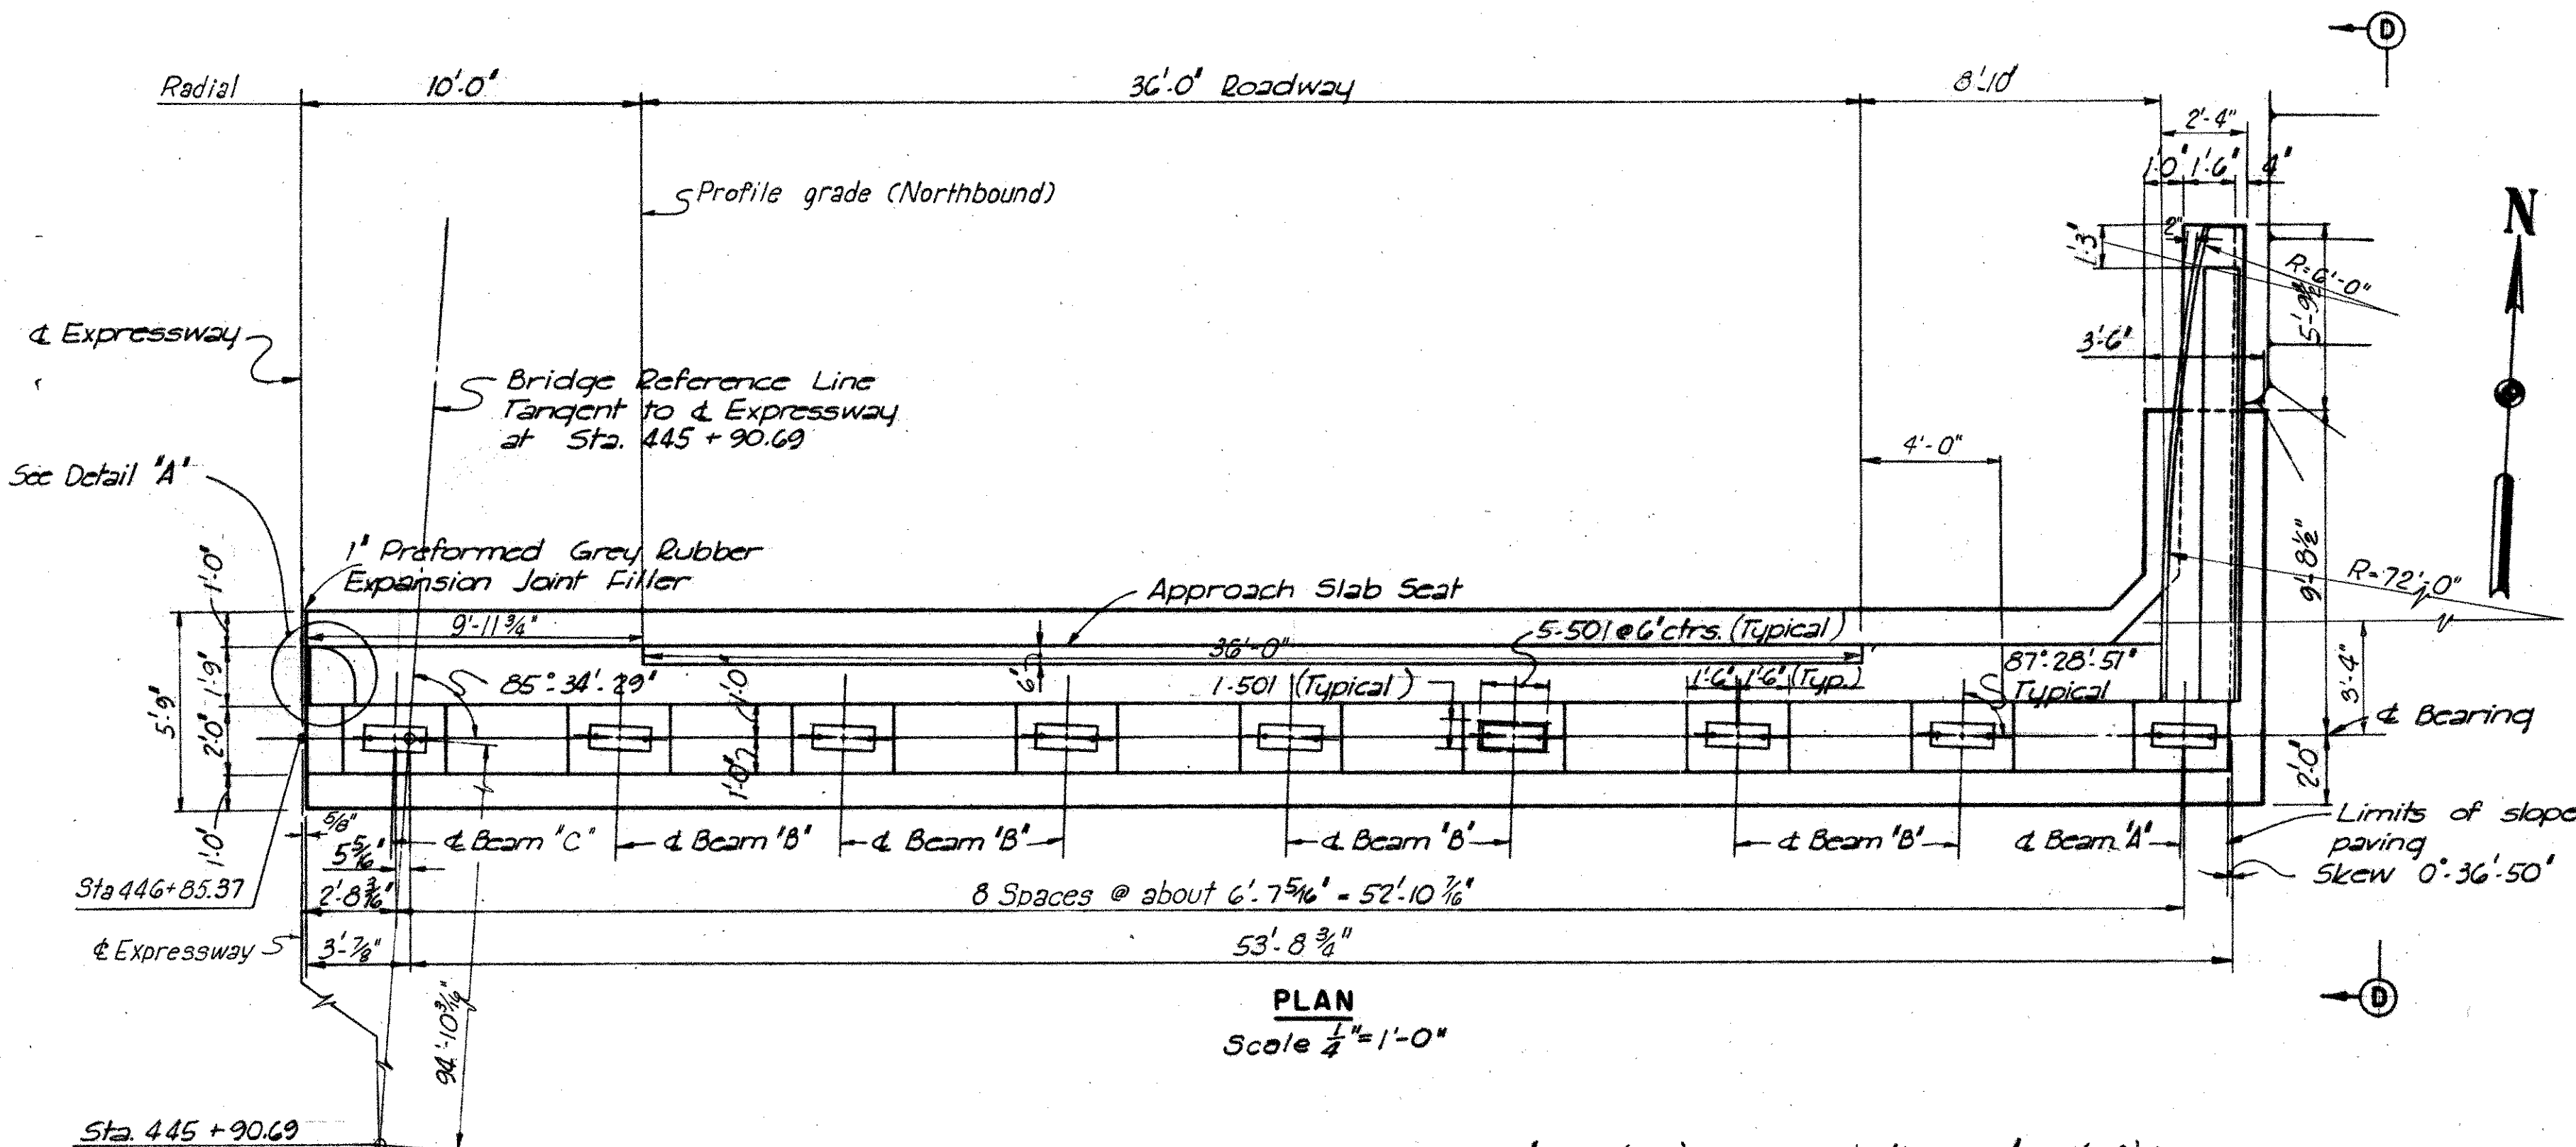 D
Radial
10'-0"
36'-0" Roadway
8'-10
2'-4"
1'-0" 1'-6" 4"
Profile grade (Northbound)
N
2"
1'-3"
R=6'-0"
5'-9½"
℄ Expressway
3'-6"
Bridge Reference Line
Tangent to ℄ Expressway
at Sta. 445 + 90.69
4'-0"
See Detail "A"
1" Preformed Grey Rubber
Expansion Joint Filler
Approach Slab Seat
9'-8½"
R=72'-0"
1'-0"
9'-11¾"
5-501 @ 6" ctrs. (Typical)
36'-0"
6"
1'-9"
85°-34'-29"
1'-0"
1-501 (Typical)
1'-6" 1'-6" (Typ.)
87°-28'-51"
Typical
3'-4"
5'-9"
2'-0"
℄ Bearing
1'-0"
2'-0"
1'-0"
5/8"
5 5/16"
℄ Beam "C"
℄ Beam "B"
℄ Beam "B"
℄ Beam "B"
℄ Beam "B"
℄ Beam "A"
Limits of slope
paving
Skew 0°-36'-50"
Sta 446+85.37
2'-8 3/16"
8 Spaces @ about 6'-7 5/16" = 52'-10 7/16"
℄ Expressway
3'-7/8"
53'-8 3/4"
94'-10 3/16"
PLAN
Scale ¼"=1'-0"
D
Sta. 445 + 90.69